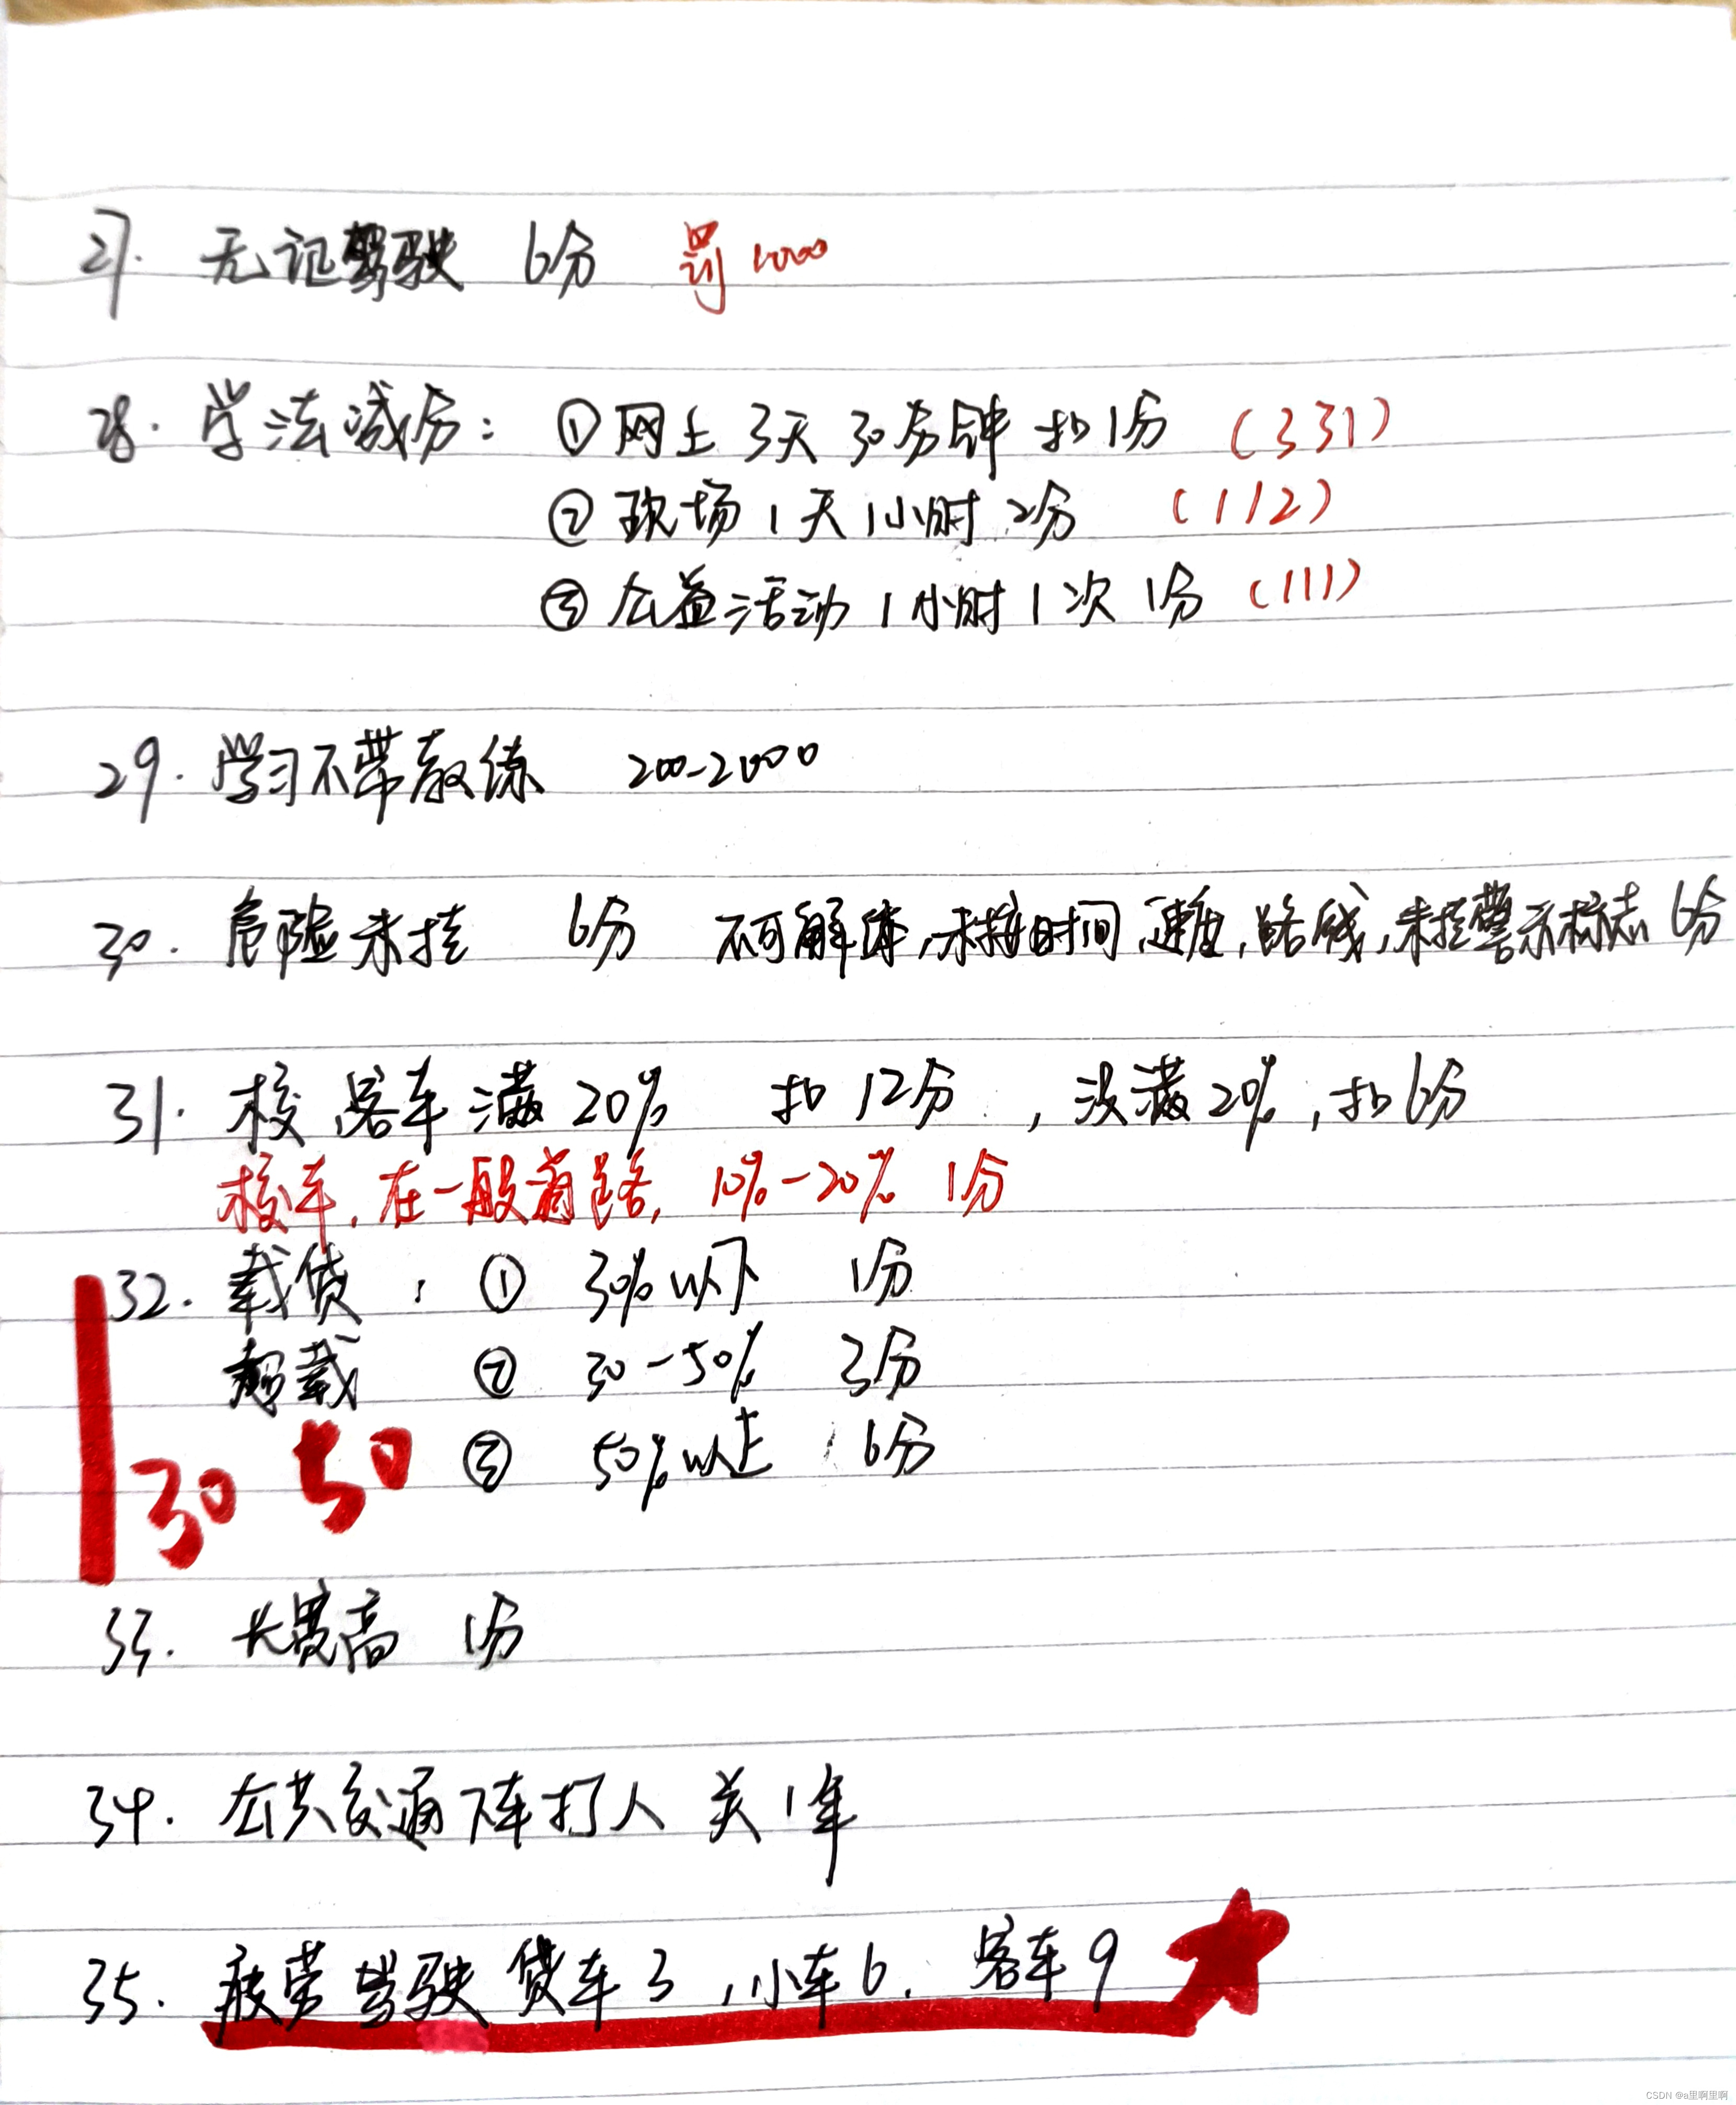 27. 无记驾驶 6分 罚1000
28. 学法减分: ①网上 3天 30分钟 扣1分 (331)
② 现场 1天 1小时 2分 (112)
③ 公益活动 1小时 1次 1分 (111)
29. 学习不带教练 200-2000
30. 危险未挂 6分 不可解体,未按时间,速度,路线,未挂警示标志 6分
31. 校 客车 满 20% 扣 12分 , 没满 20% , 扣 6分
校车, 在一般道路, 10%-20% 1分
32. 载货 : ① 30%以下 1分
超载 ② 30-50% 3分
30 50 ③ 50%以上 6分
33. 长宽高 1分
34. 公共交通下车打人 关1年
35. 疲劳驾驶 货车3 , 小车6 . 客车9
CSDN @a里啊里啊